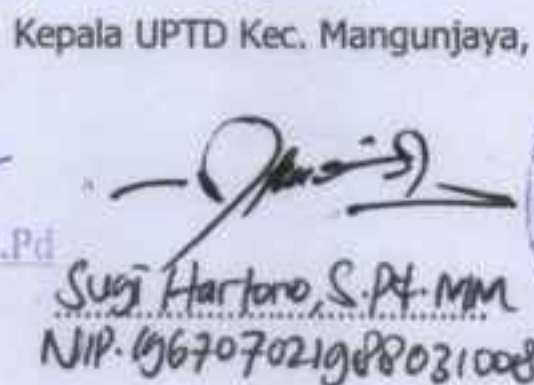 Kepala UPTD Kec. Mangunjaya,
.Pd
Sugi Hartono, S.Pt. MM
NIP. 196707021988031008